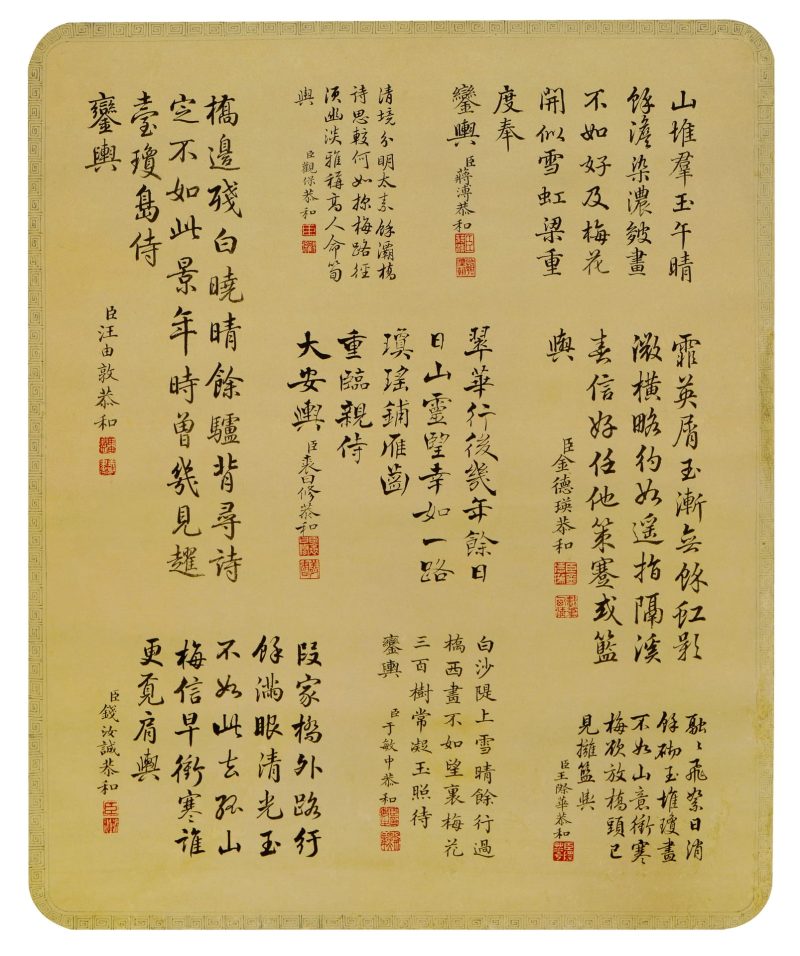 山堆羣玉午晴
餘澹染濃皴畫
不如好及梅花
開似雪虹梁重
度奉
鑾輿
臣蔣溥恭和
霏英屑玉漸無餘虹影
微橫略彴如遥指隔溪
春信好任他策蹇或籃
輿
臣金德瑛恭和
融々飛絮日消
餘砌玉堆瓊畫
不如山意衝寒
梅欲放橋頭已
見擁籃輿
臣王際華恭和
清境分明太素餘灞橋
詩思較何如探梅路徑
須幽淡雅稱高人命筍
輿
臣觀保恭和
翠華行後幾年餘日
日山靈望幸如一路
瓊瑤鋪雁齒
重臨親侍
大安輿
臣裘曰修恭和
白沙隄上雪晴餘行過
橋西畫不如望裏梅花
三百樹常凝玉照待
鑾輿
臣于敏中恭和
橋邊殘白曉晴餘驢背尋詩
定不如此景年時曾幾見趯
臺瓊島侍
鑾輿
臣汪由敦恭和
段家橋外路行
餘滿眼清光玉
不如此去孤山
梅信早衝寒誰
更覓肩輿
臣錢汝誠恭和